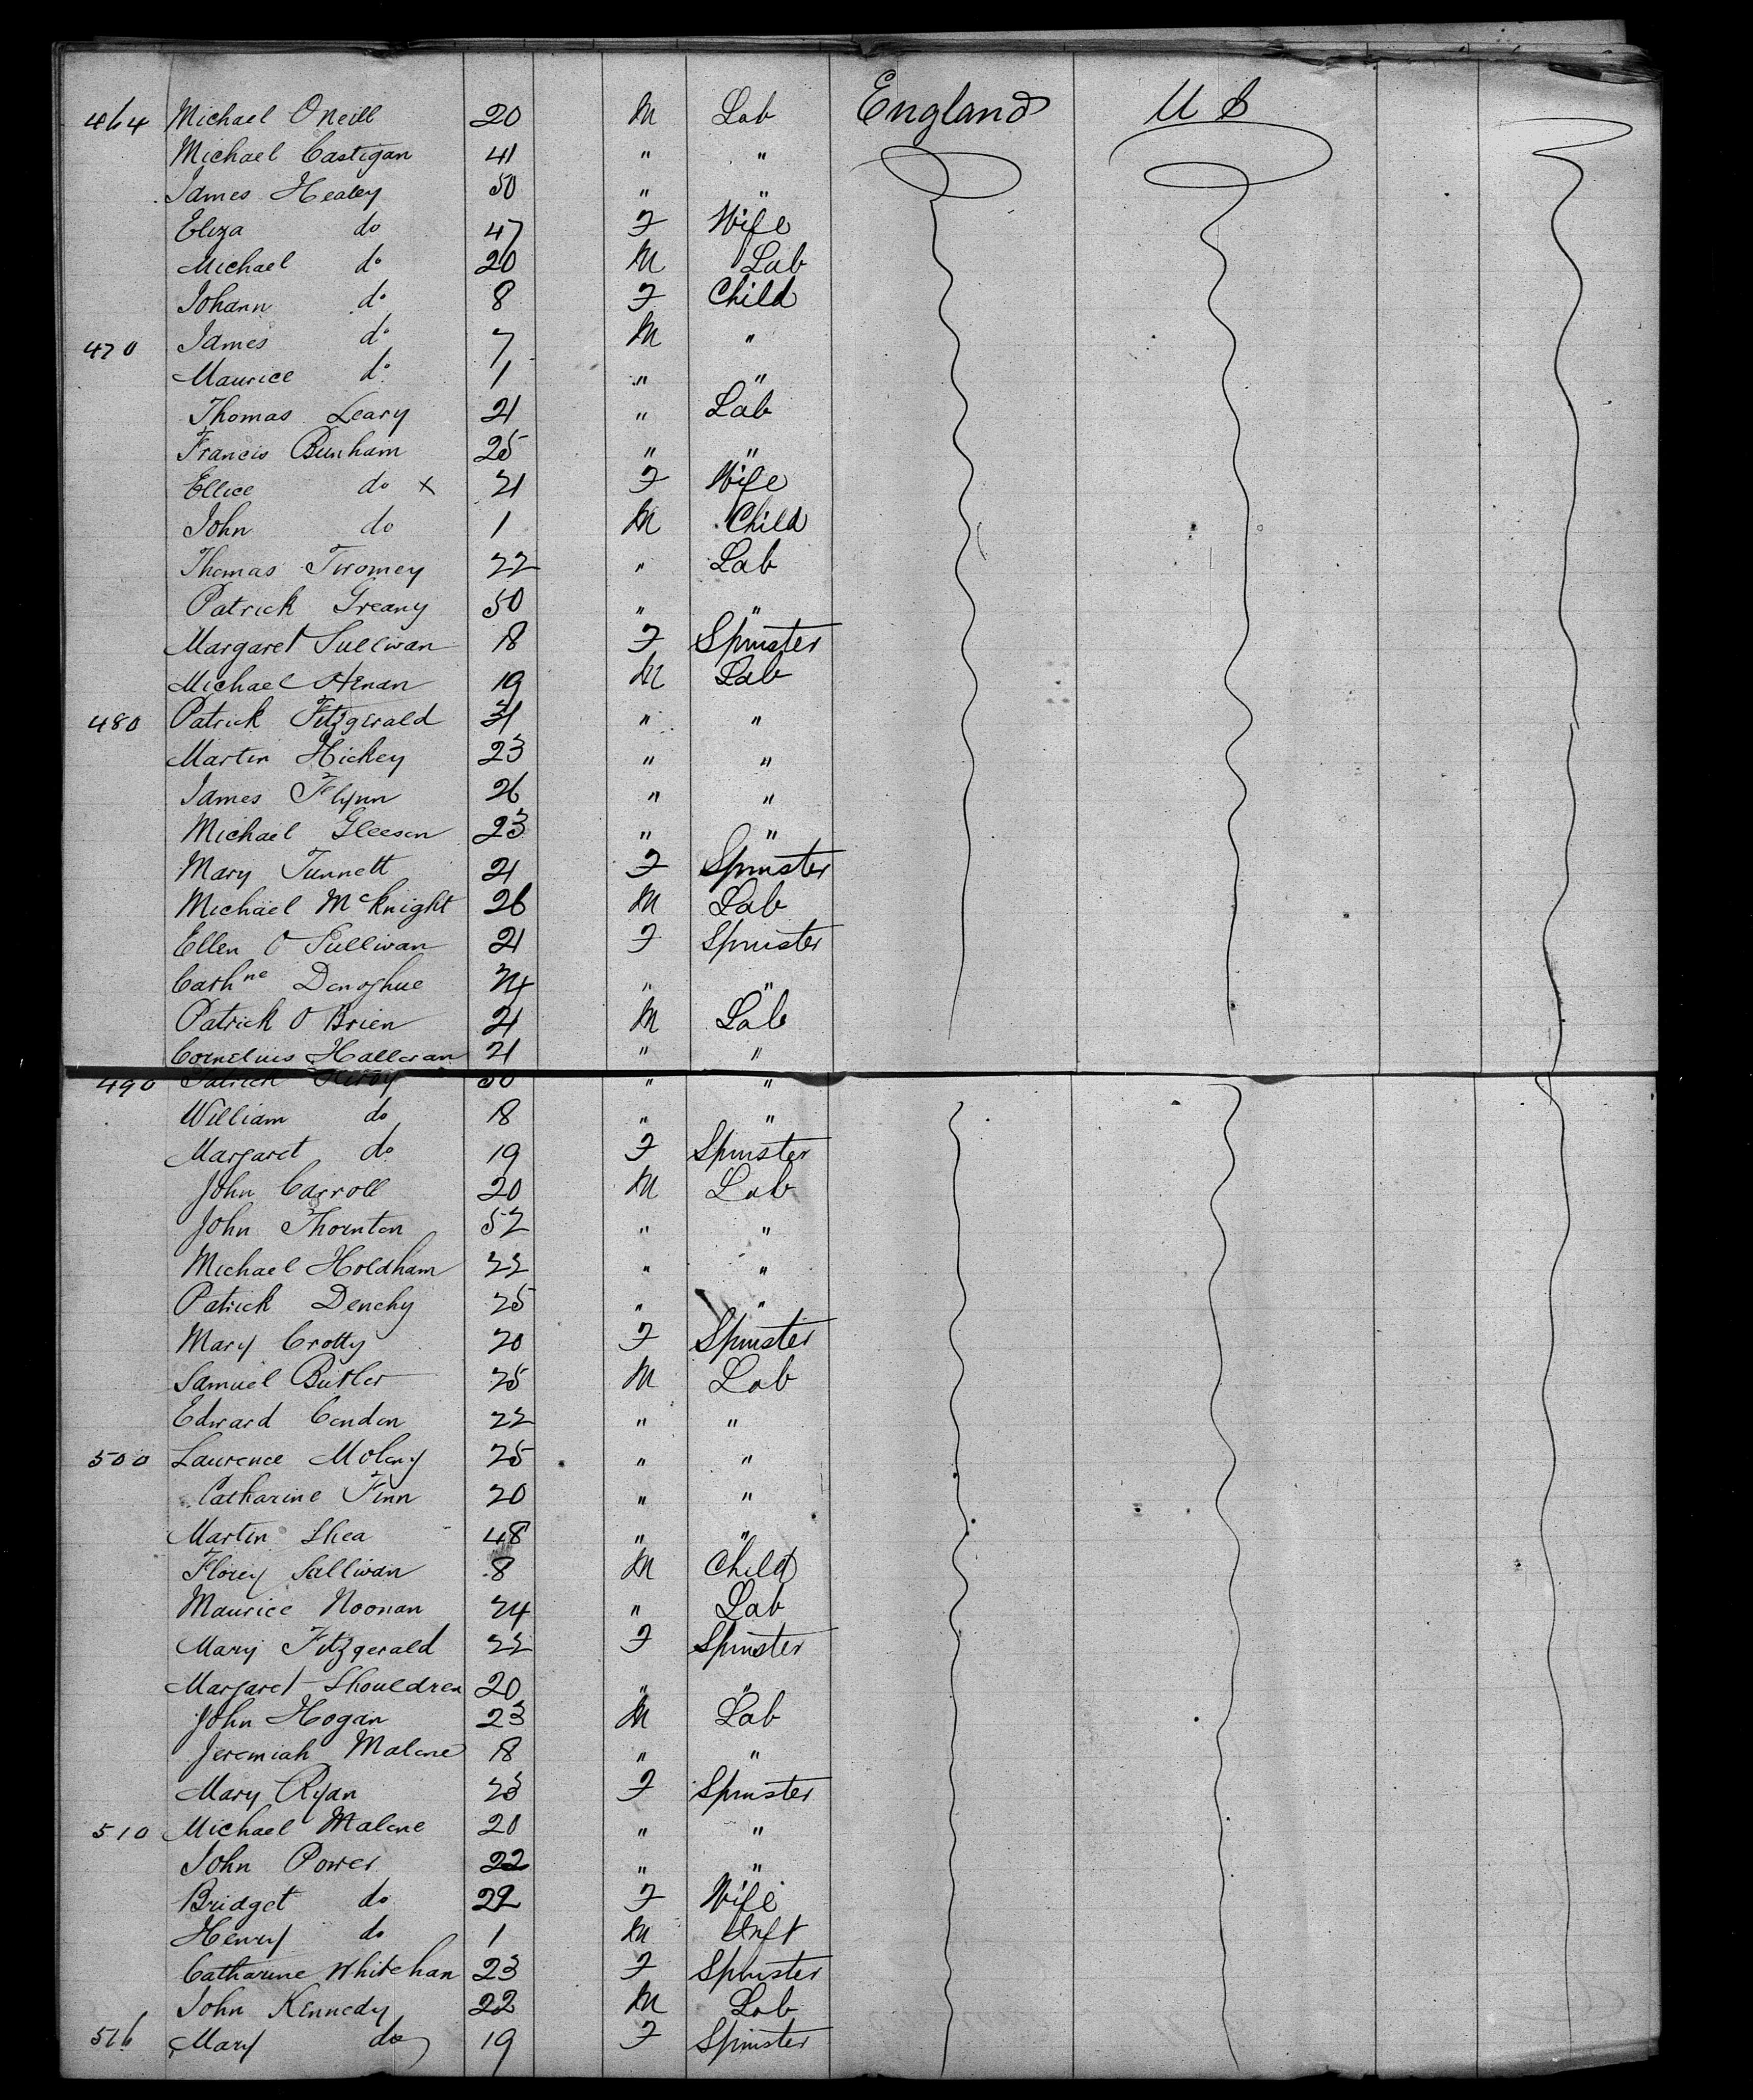 464 Michael ONeill 20 M Lab England U S
Michael Castigan 41 " "
James Healey 50 " "
Eliza do 47 F Wife
Michael do 20 M Lab
Johann do 8 F Child
470 James do 7 M "
Maurice do 1 " "
Thomas Leary 21 " Lab
Francis Bunham 25 " "
Ellice do x 21 F Wife
John do 1 M Child
Thomas Twomey 22 " Lab
Patrick Greany 50 " "
Margaret Sullivan 18 F Spinster
Michael 19 M Lab
480 Patrick Fitzgerald 31 " "
Martin Hickey 23 " "
James Flynn 26 " "
Michael Gleeson 23 " "
Mary Tunnett 21 F Spinster
Michael McKnight 26 M Lab
Ellen O Sullivan 21 F Spinster
Cathne Donoghue 24 " "
Patrick O Brien 21 M Lab
Cornelius Halloran 21 " "
490 Patrick " "
William do 18 " "
Margaret do 19 F Spinster
John Carroll 20 M Lab
John Thornton 52 " "
Michael Holdham 22 " "
Patrick Denehy 25 " "
Mary Crotty 20 F Spinster
Samuel Butler 25 M Lab
Edward Condon 22 " "
500 Laurence Molony 25 " "
Catharine Finn 20 " "
Martin Shea 48 " "
Florey Sullivan 8 M Child
Maurice Noonan 24 " Lab
Mary Fitzgerald 22 F Spinster
Margaret Shouldren 20 " "
John Hogan 23 M Lab
Jeremiah Malone 18 " "
Mary Ryan 23 F Spinster
510 Michael Malone 20 " "
John Power 22 " "
Bridget do 22 F Wife
Henry do 1 M Inft
Catharine Whitehan 23 F Spinster
John Kennedy 22 M Lab
516 Mary do 19 F Spinster